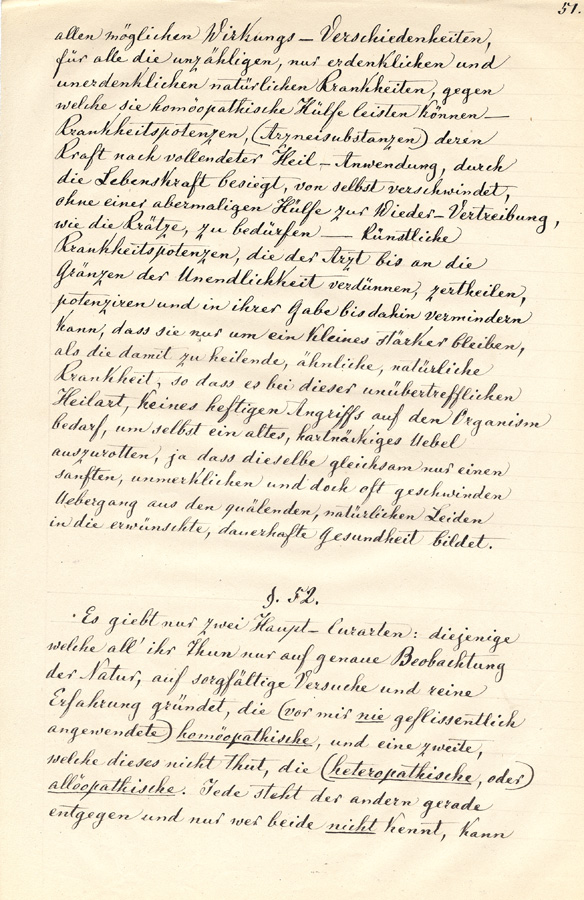 51.
allen möglichen Wirkungs-Verschiedenheiten,
für alle die unzähligen, nur erdenklichen und
unerdenklichen natürlichen Krankheiten, gegen
welche sie homöopathische Hülfe leisten können —
Krankheitspotenzen, (Arzneisubstanzen) deren
Kraft nach vollendeter Heil-Anwendung, durch
die Lebenskraft besiegt, von selbst verschwindet,
ohne einer abermaligen Hülfe zur Wieder-Vertreibung,
wie die Krätze, zu bedürfen — Künstliche
Krankheitspotenzen, die der Arzt bis an die
Gränzen der Unendlichkeit verdünnen, zertheilen,
potenziren und in ihrer Gabe bis dahin vermindern
kann, dass sie nur um ein Kleines stärker bleiben,
als die damit zu heilende, ähnliche, natürliche
Krankheit, so dass es bei dieser unübertrefflichen
Heilart, keines heftigen Angriffs auf den Organism
bedarf, um selbst ein altes, hartnäkiges Uebel
auszurotten, ja dass dieselbe gleichsam nur einen
sanften, unmerklichen und doch oft geschwinden
Uebergang aus den quälenden, natürlichen Leiden
in die erwünschte, dauerhafte Gesundheit bildet.
§. 52.
Es giebt nur zwei Haupt-Curarten: diejenige
welche all' ihr Thun nur auf genaue Beobachtung
der Natur, auf sorgfältige Versuche und reine
Erfahrung gründet, die (vor mir nie geflissentlich
angewendete) homöopathische, und eine zweite,
welche dieses nicht thut, die (heteropathische, oder)
allöopathische. Jede steht der andern gerade
entgegen und nur wer beide nicht kennt, kann